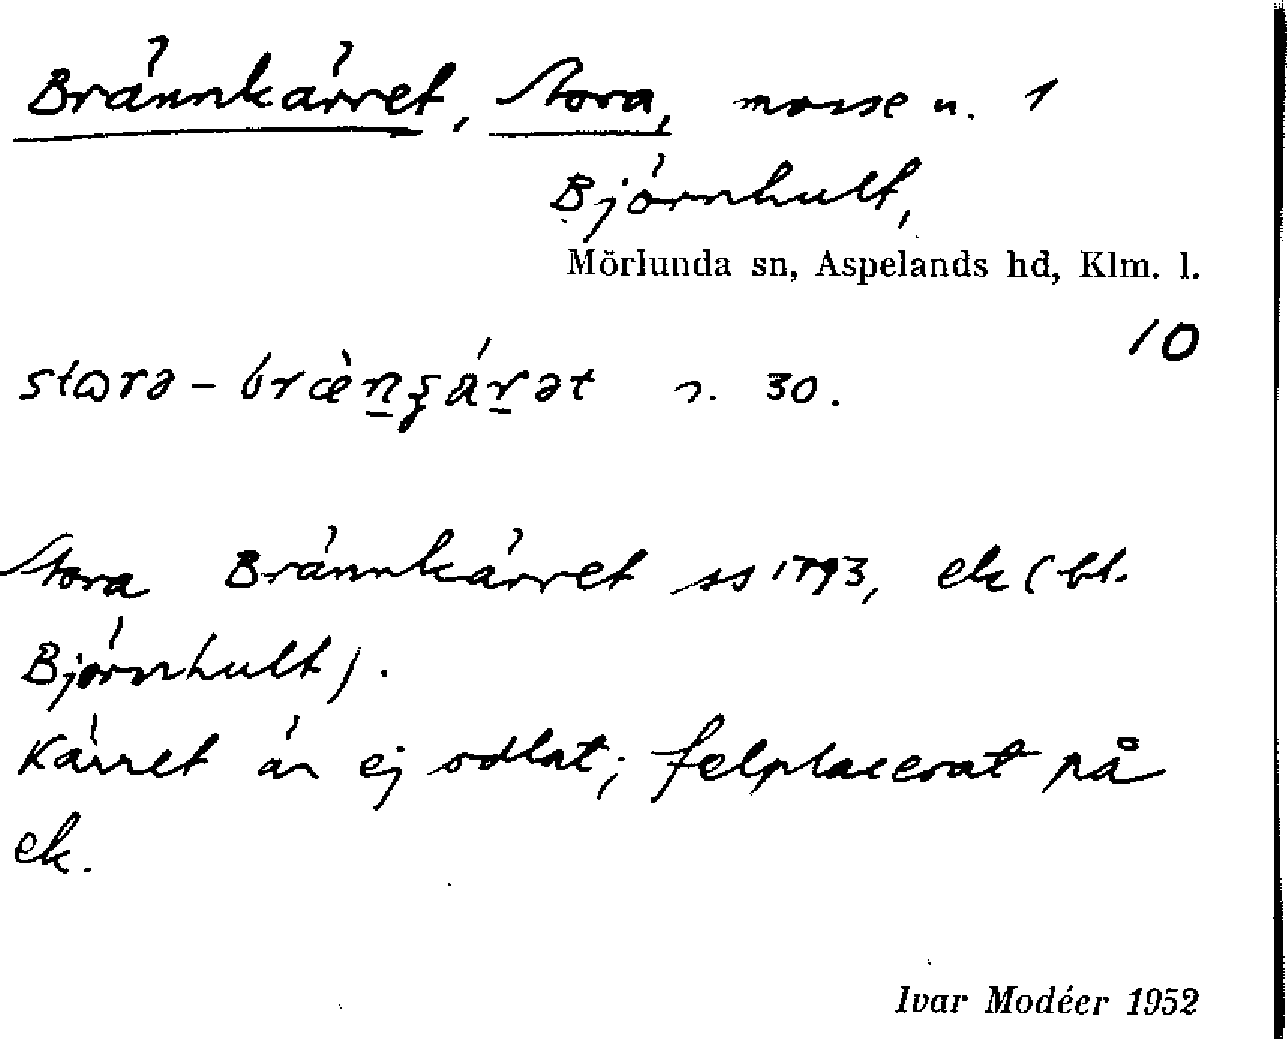 Brännkärret, Stora, mosse u. 1
Björnhult,
Mörlunda sn, Aspelands hd, Klm. l.
10
30.
Stora Brännkärret ss 1793, ek (bl.
Björnhult).
Kärret är ej odlat; felplacerat på
ek.
Ivar Modéer 1952